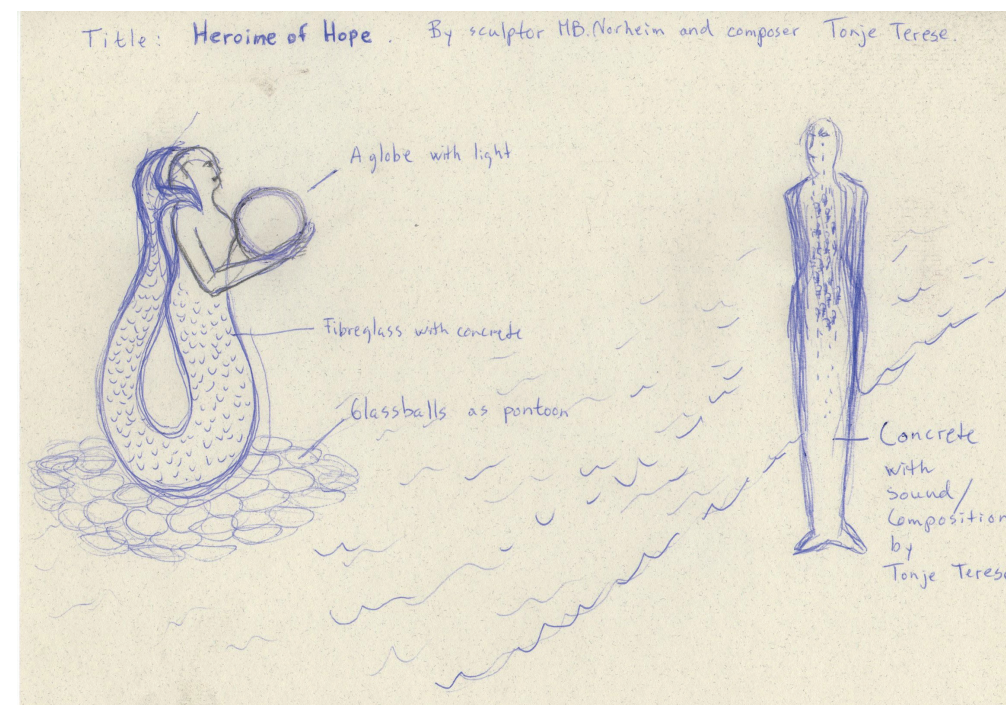 Title: Heroine of Hope. By sculptor MB.Norheim and composer Tonje Terese.
A globe with light
Fibreglass with concrete
Glassballs as pontoon
Concrete
with
sound/
Composition
by
Tonje Terese